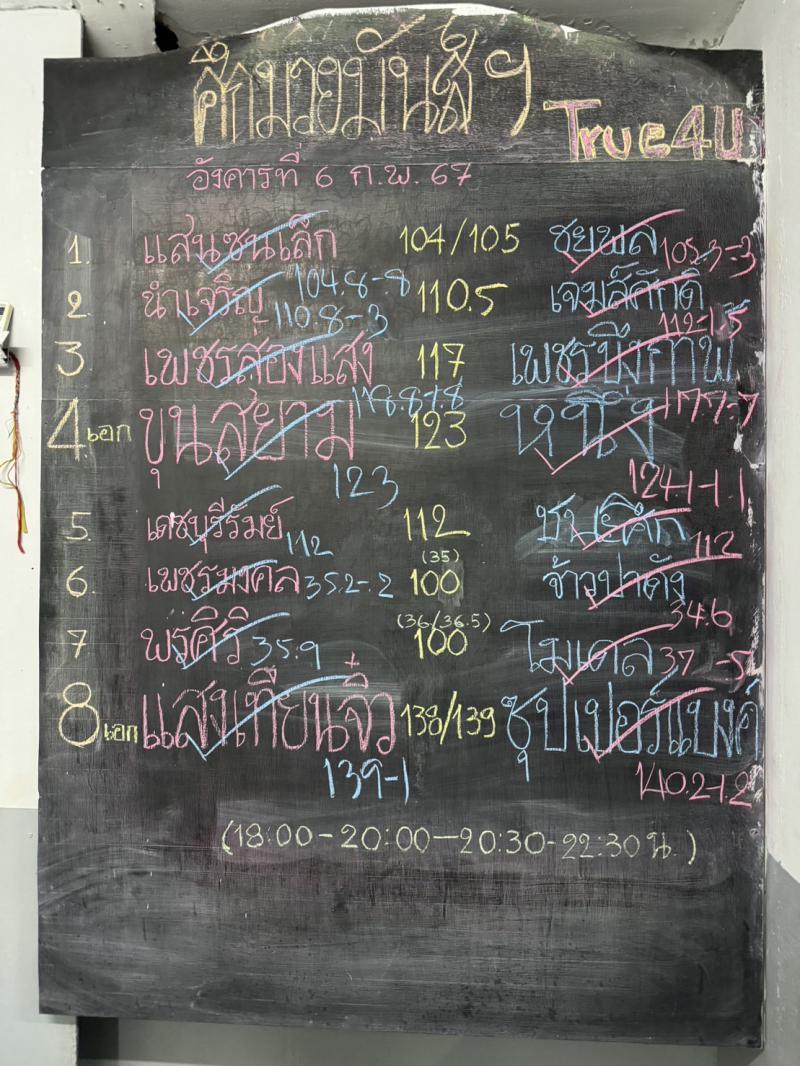 ศึกมวยมันส์ฯ
True4U
อังคารที่ 6 ก.พ. 67
1. แสนซนเล็ก 104/105 ชยพล 105.3-.3
2. นำเจริญ 104.8-.8 110.5 เจมส์ศักดิ์
110.8-3 112-1.5
3 เพชรสองแสง 117 เพชรบึงกาฬ
118.8-1.8 117.7-.7
4 เอก ขุนสยาม 123 หนึ่ง
123 124.1-1.1
5. เดชบุรีรัมย์ 112 112
112
6. เพชรมงคล 35.2-.2 (35) 100 จ้าวป่าดัง
34.6
7 พรศิริ 35.9 (36/36.5) 100 โมเดล 37 -.5
8 เอก แสงเทียนจิ๋ว 138/139 ซุปเปอร์แบงค์
139-1 140.2-1.2
(18:00-20:00-20:30-22:30น.)